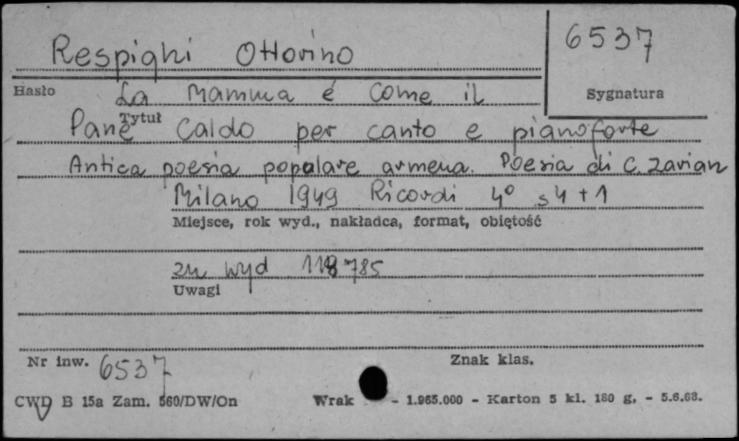 Respighi Ottorino
6537
Hasło
Sygnatura
La mamma é come il
Tytuł
Pane caldo per canto e pianoforte
Antica poesia popolare armena. Poesia di C. Zarian
Milano 1949 Ricordi 4° s 4 + 1
Miejsce, rok wyd., nakładca, format, objętość
zn wyd 118785
Uwagi
Nr inw. 6537
Znak klas.
CWD B 15a Zam. 560/DW/On Wrak - 1.965.000 - Karton 5 kl. 180 g. - 5.6.68.